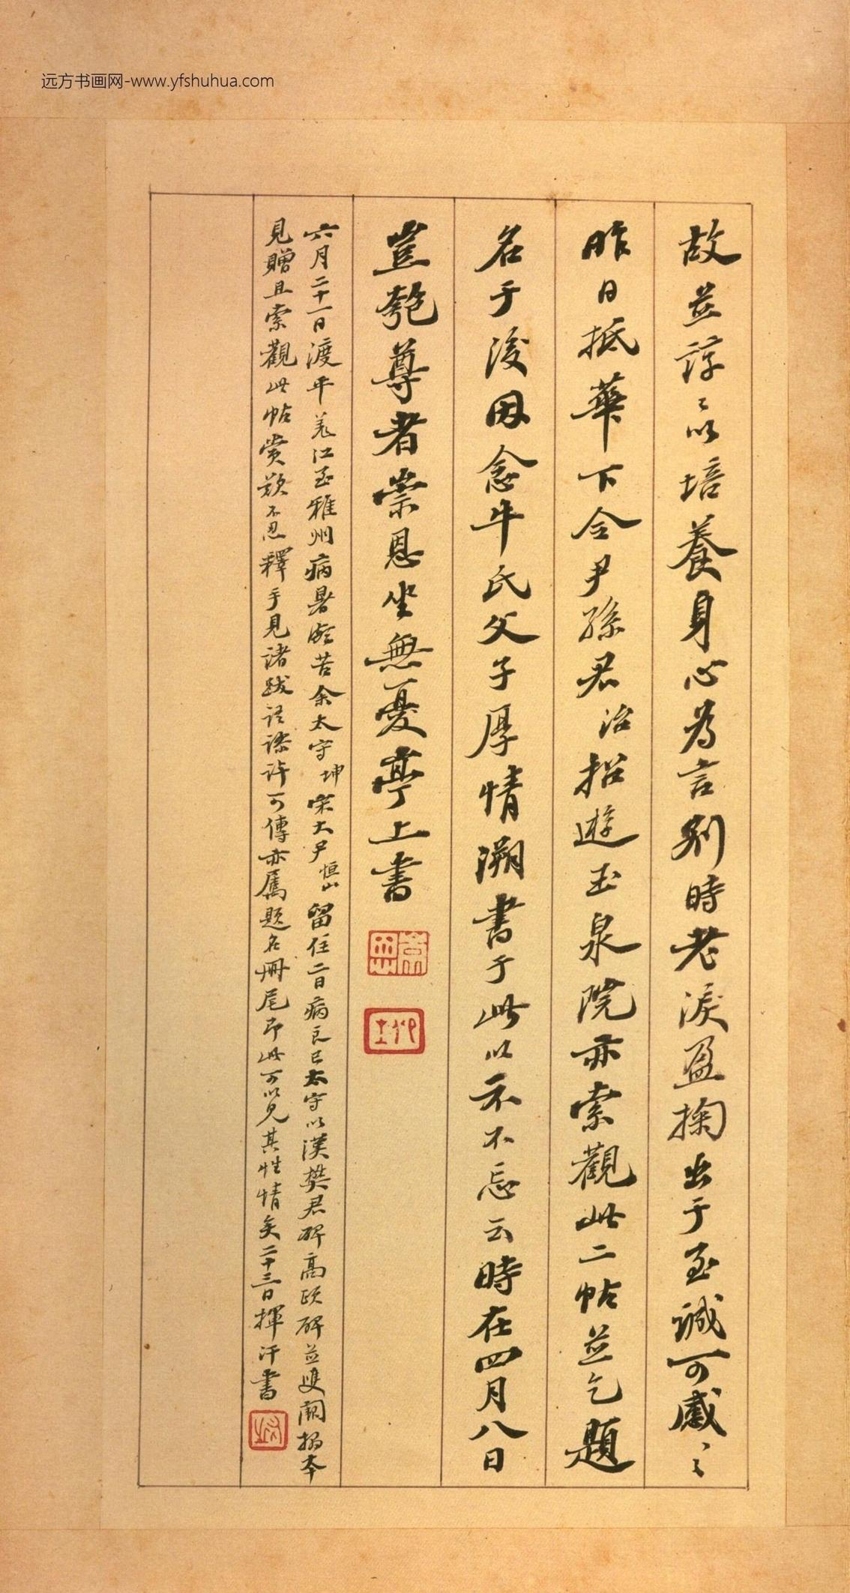 远方书画网-www.yfshuhua.com
故並諄〻以培養身心為言別時老淚盈掬出于至誠可感〻
昨日抵華下令尹孫君治招遊玉泉院亦索觀此二帖並乞題
名于後因念牛氏父子厚情溯書于此以示不忘云時在四月八日
豈匏尊者崇恩坐無憂亭上書
六月二十一日渡平羌江至雅州病暑頗苦余太守坤宋大尹恒山留住二日病良已太守以漢樊君碑高頤碑並雙闕搨本
見贈且索觀此帖賞歎不忍釋手見諸跋語謬許可傳亦屬題名冊尾即此可以見其性情矣二十三日揮汗書